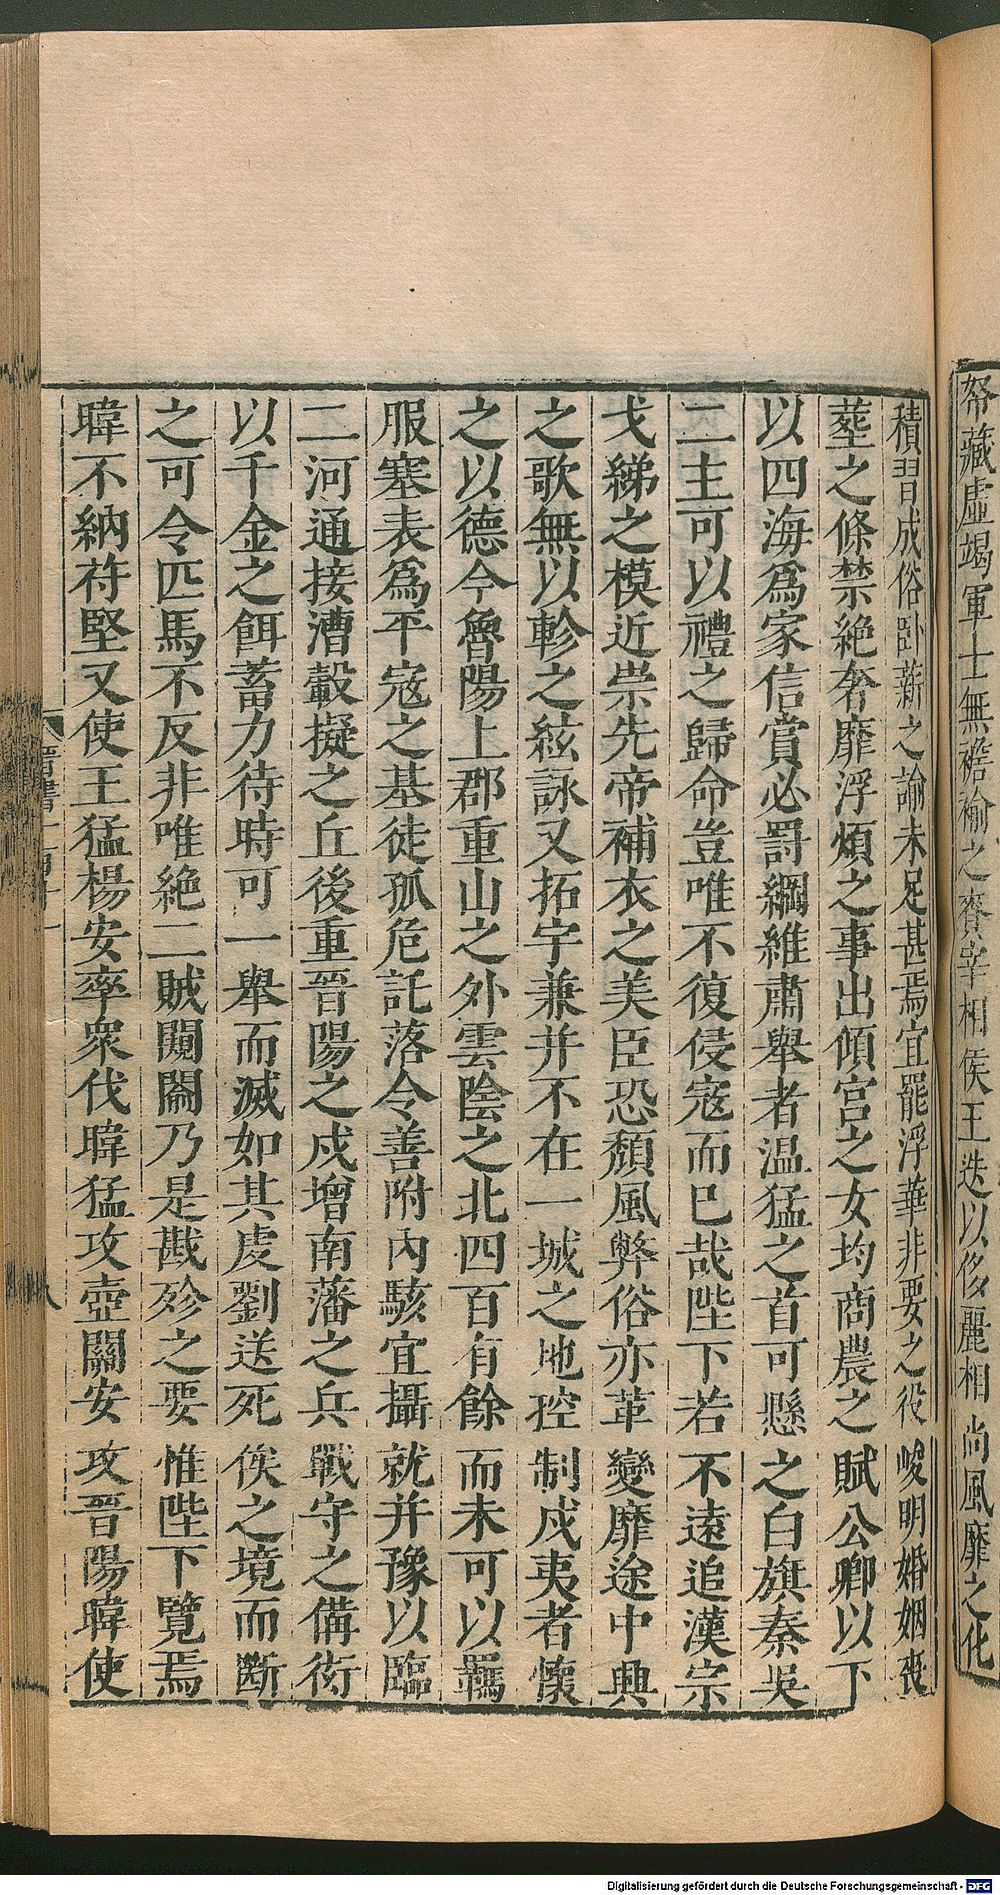 帑藏虛竭軍士無襜褕之賚宰相侯王迭以侈麗相尚風靡之化
積習成俗臥薪之諭未足甚焉宜罷浮華非要之役峻明婚姻喪
塟之條禁絶奢靡浮煩之事出傾宮之女均商農之賦公卿以下
以四海爲家信賞必罰綱維肅舉者温猛之首可懸之白旗秦吳
二主可以禮之歸命豈唯不復侵寇而巳哉陛下若不遠追漢宗
弋綈之模近崇先帝補衣之美臣恐頽風弊俗亦革變靡途中興
之歌無以軫之絃詠又拓宇兼并不在一城之地控制戍夷者懷
之以德今魯陽上郡重山之外雲陰之北四百有餘而未可以羈
服塞表爲平寇之基徒孤危託落令善附內駭宜攝就并豫以臨
二河通接漕轂擬之丘後重晉陽之戍增南藩之兵戰守之備衒
以千金之餌蓄力待時可一舉而滅如其虔劉送死俟之境而斷
之可令匹馬不反非唯絶二賊闚閫乃是戡殄之要惟陛下覽焉
暐不納苻堅又使王猛楊安率衆伐暐猛攻壺關安攻晉陽暐使
晉書
八
Digitalisierung gefördert durch die Deutsche Forschungsgemeinschaft - DFG